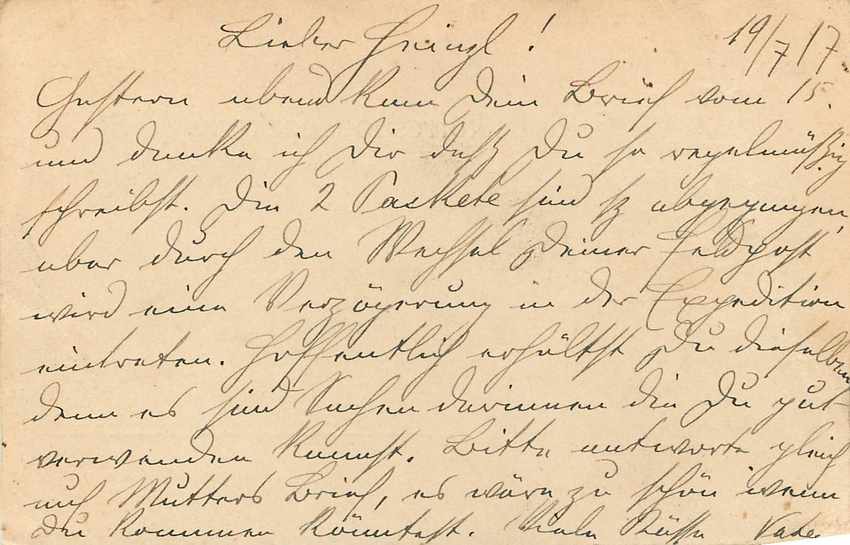 Lieber Heinzl! 19/7/17
Gestern abend kam Dein Brief vom 15.
und danke ich Dir daß Du so regelmäßig
schreibst. Die 2 Packete sind abgegangen,
aber durch den Wechsel Deiner Feldpost
wird eine Verzögerung in der Expedition
eintreten. Hoffentlich erhältst Du dieselben
denn es sind Sachen darinnen die Du gut
verwenden kannst. Bitte antworte gleich
auf Mutters Brief, es wäre zu schön wenn
Du kommen könntest. Viele Küsse Vater